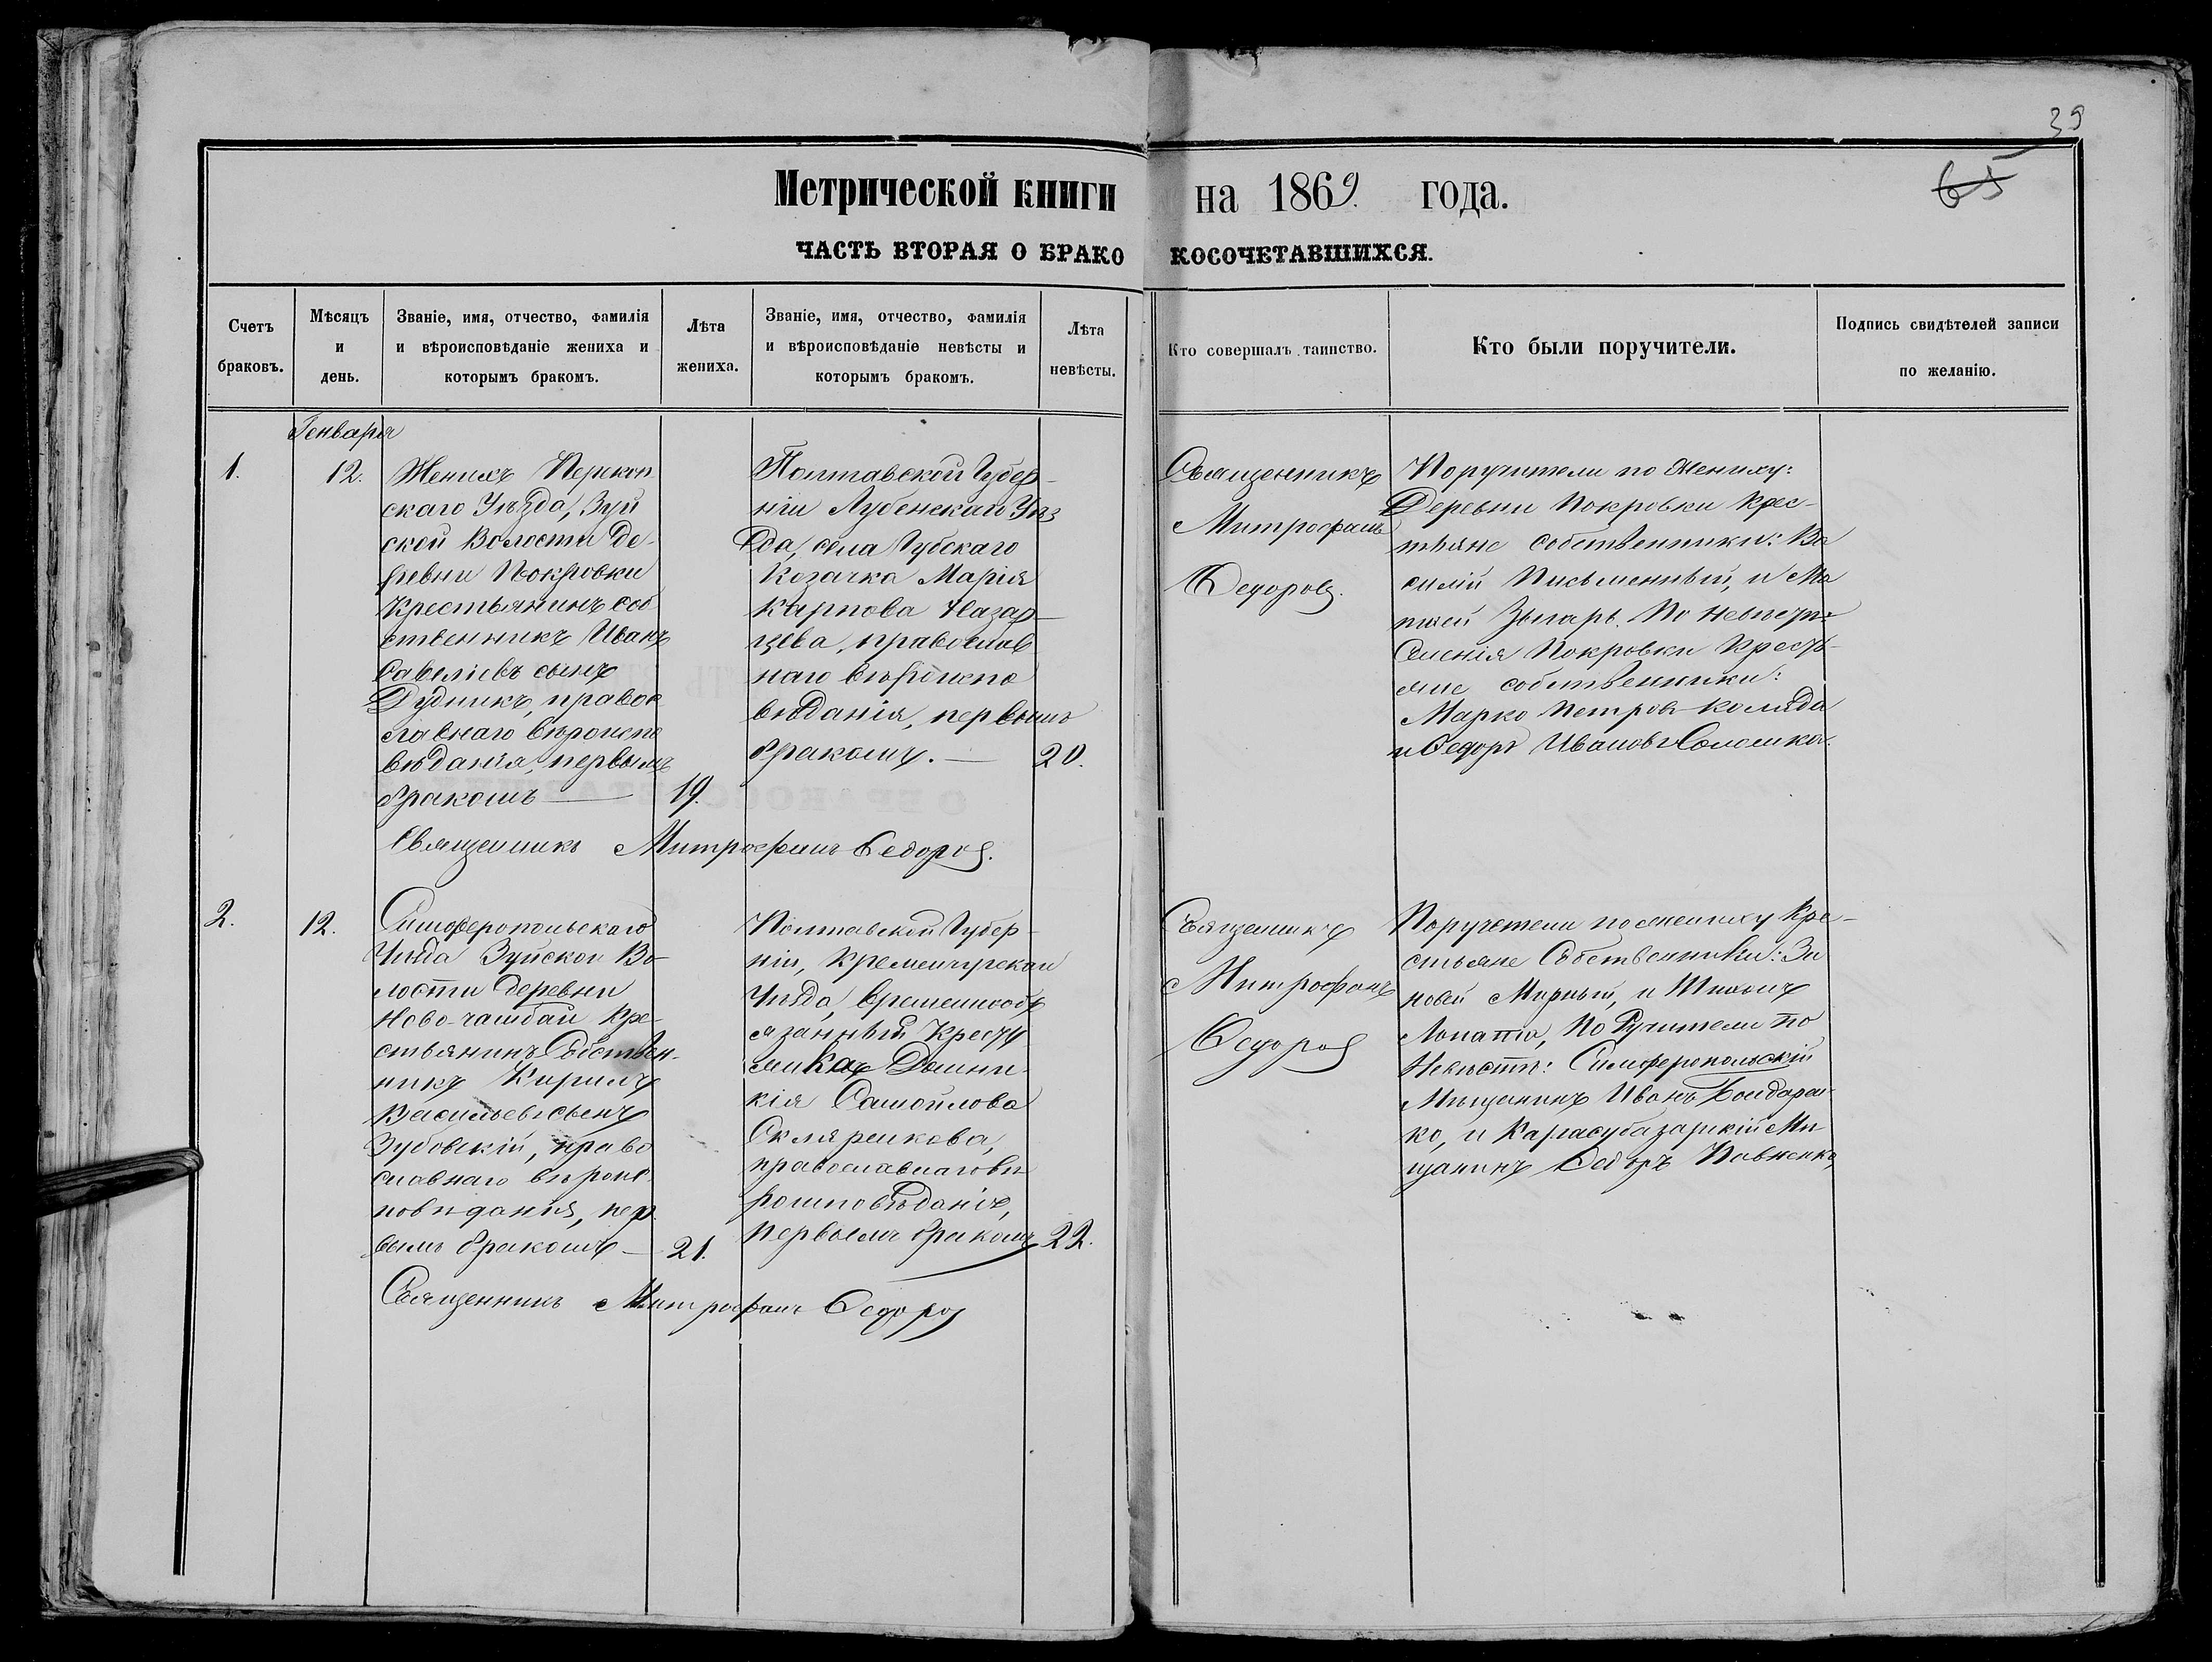 39
65
Метрической книги на 1869. года.
ЧАСТЬ ВТОРАЯ О БРАКОКОСОЧЕТАВШИХСЯ.
Счетъ браковъ.
Мѣсяцъ и день.
Званіе, имя, отчество, фамилія и вѣроисповѣданіе жениха и которымъ бракомъ.
Лѣта жениха.
Званіе, имя, отчество, фамилія и вѣроисповѣданіе невѣсты и которымъ бракомъ.
Лѣта невѣсты.
Кто совершалъ таинство.
Кто были поручители.
Подпись свидѣтелей записи по желанію.
Генваря
1.
12.
Женихъ Перекоп
скаго Уѣзда, Зуй
ской Волости де-
ревни Покровки
Крестьянинъ соб
ственникъ Иванъ
Савеліевъ сынъ
Дудникъ, правос
лавнаго вѣроиспо
вѣданія, первымъ
бракомъ — 19.
Полтавской Губер-
ніи Лубенскаго Уѣз
да, села Губскаго
Козачка Марія
Карпова Назар-
цева, православ
наго вѣроиспо
вѣданія, первымъ
бракомъ. — 20.
Священникъ
Митрофанъ
Ѳедоровъ.
Поручители по жениху:
Деревни Покровки Крес-
тьяне собственники: Ва
силій Письменный, и Ма
твей Зыгарь. По невѣстѣ:
Селенія Покровки Кресть-
яне собственники:
Марко Петровъ Коляда
и Ѳедоръ Ивановъ
Священникъ Митрофанъ Ѳедоровъ.
2.
12.
Симферопольскаго
Уѣзда Зуйской Во-
лости деревни
Ново-чамбай Кре-
стьянинъ Собствен-
никъ Кирилъ
Васильевъ сынъ
Зубовскій, право
славнаго вѣроис
повѣданія, пер
вымъ бракомъ — 21.
Полтавской Губер-
ніи, Кременчугскаго
Уѣзда, временнообя
язанный Кресть
янка Домни
кія Самойлова
Скляренкова,
православнаго вѣ
роисповѣданіе,
первымъ бракомъ 22.
Священникъ
Митрофанъ
Ѳедоровъ
Поручетели по жениху Кре-
стьяне Собственники: Зи
новей Мирный, и Тихонъ
Лопатта, По Ручители по
Невѣстѣ: Симферопольскій
Мѣщанинъ Иванъ Бондарен-
ко, и Карасубазарскій Мѣ
щанинъ Ѳедоръ Павненко,
Священникъ Митрофанъ Ѳедоровъ